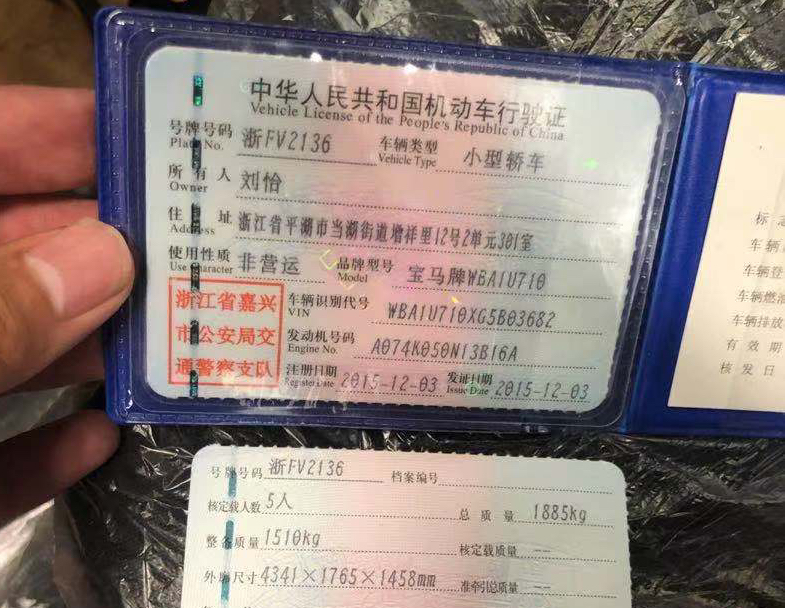 中华人民共和国机动车行驶证
Vehicle License of the People's Republic of China
号牌号码 浙FV2136 车辆类型 小型轿车
Plate No. Vehicle Type
所有人 刘怡
Owner
住址 浙江省平湖市当湖街道增祥里12号2单元301室
Address
使用性质 非营运 品牌型号 宝马牌WBA1U710
Use Character Model
浙江省嘉兴
市公安局交
通警察支队
车辆识别代号 WBA1U710XG5B03682
VIN
发动机号码 A074K050N13B16A
Engine No.
注册日期 2015-12-03 发证日期 2015-12-03
Register Date Issue Date
标志
车辆
车辆登
车辆燃油
车辆排放
有效期
核发日
号牌号码 浙FV2136 档案编号
核定载人数 5人 总质量 1885kg
整备质量 1510kg 核定载质量 --
外廓尺寸 4341×1765×1458mm 准牵引总质量 --